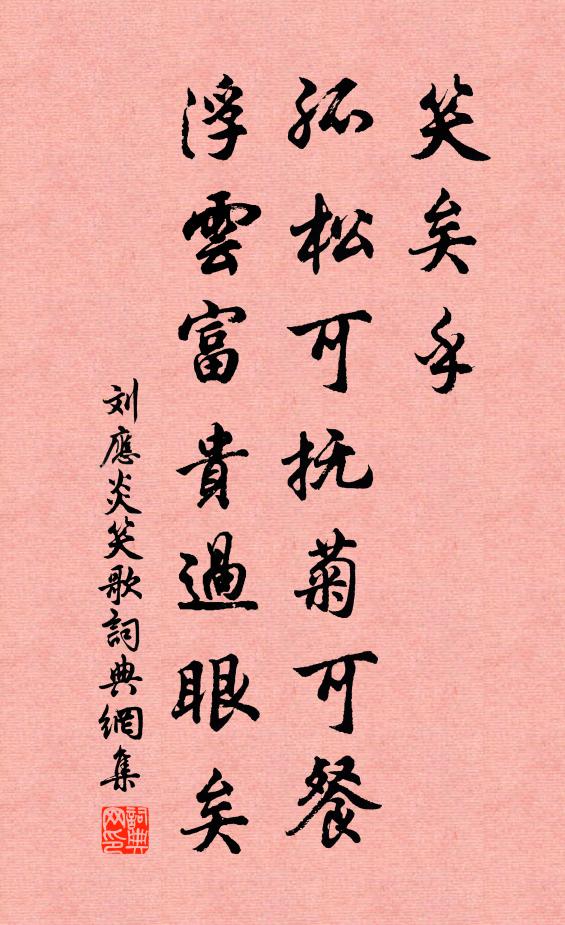 笑矣乎
孤松可抚菊可餐
浮雲富貴過眼矣
刘應炎笑歌詞典網集
詞典网印